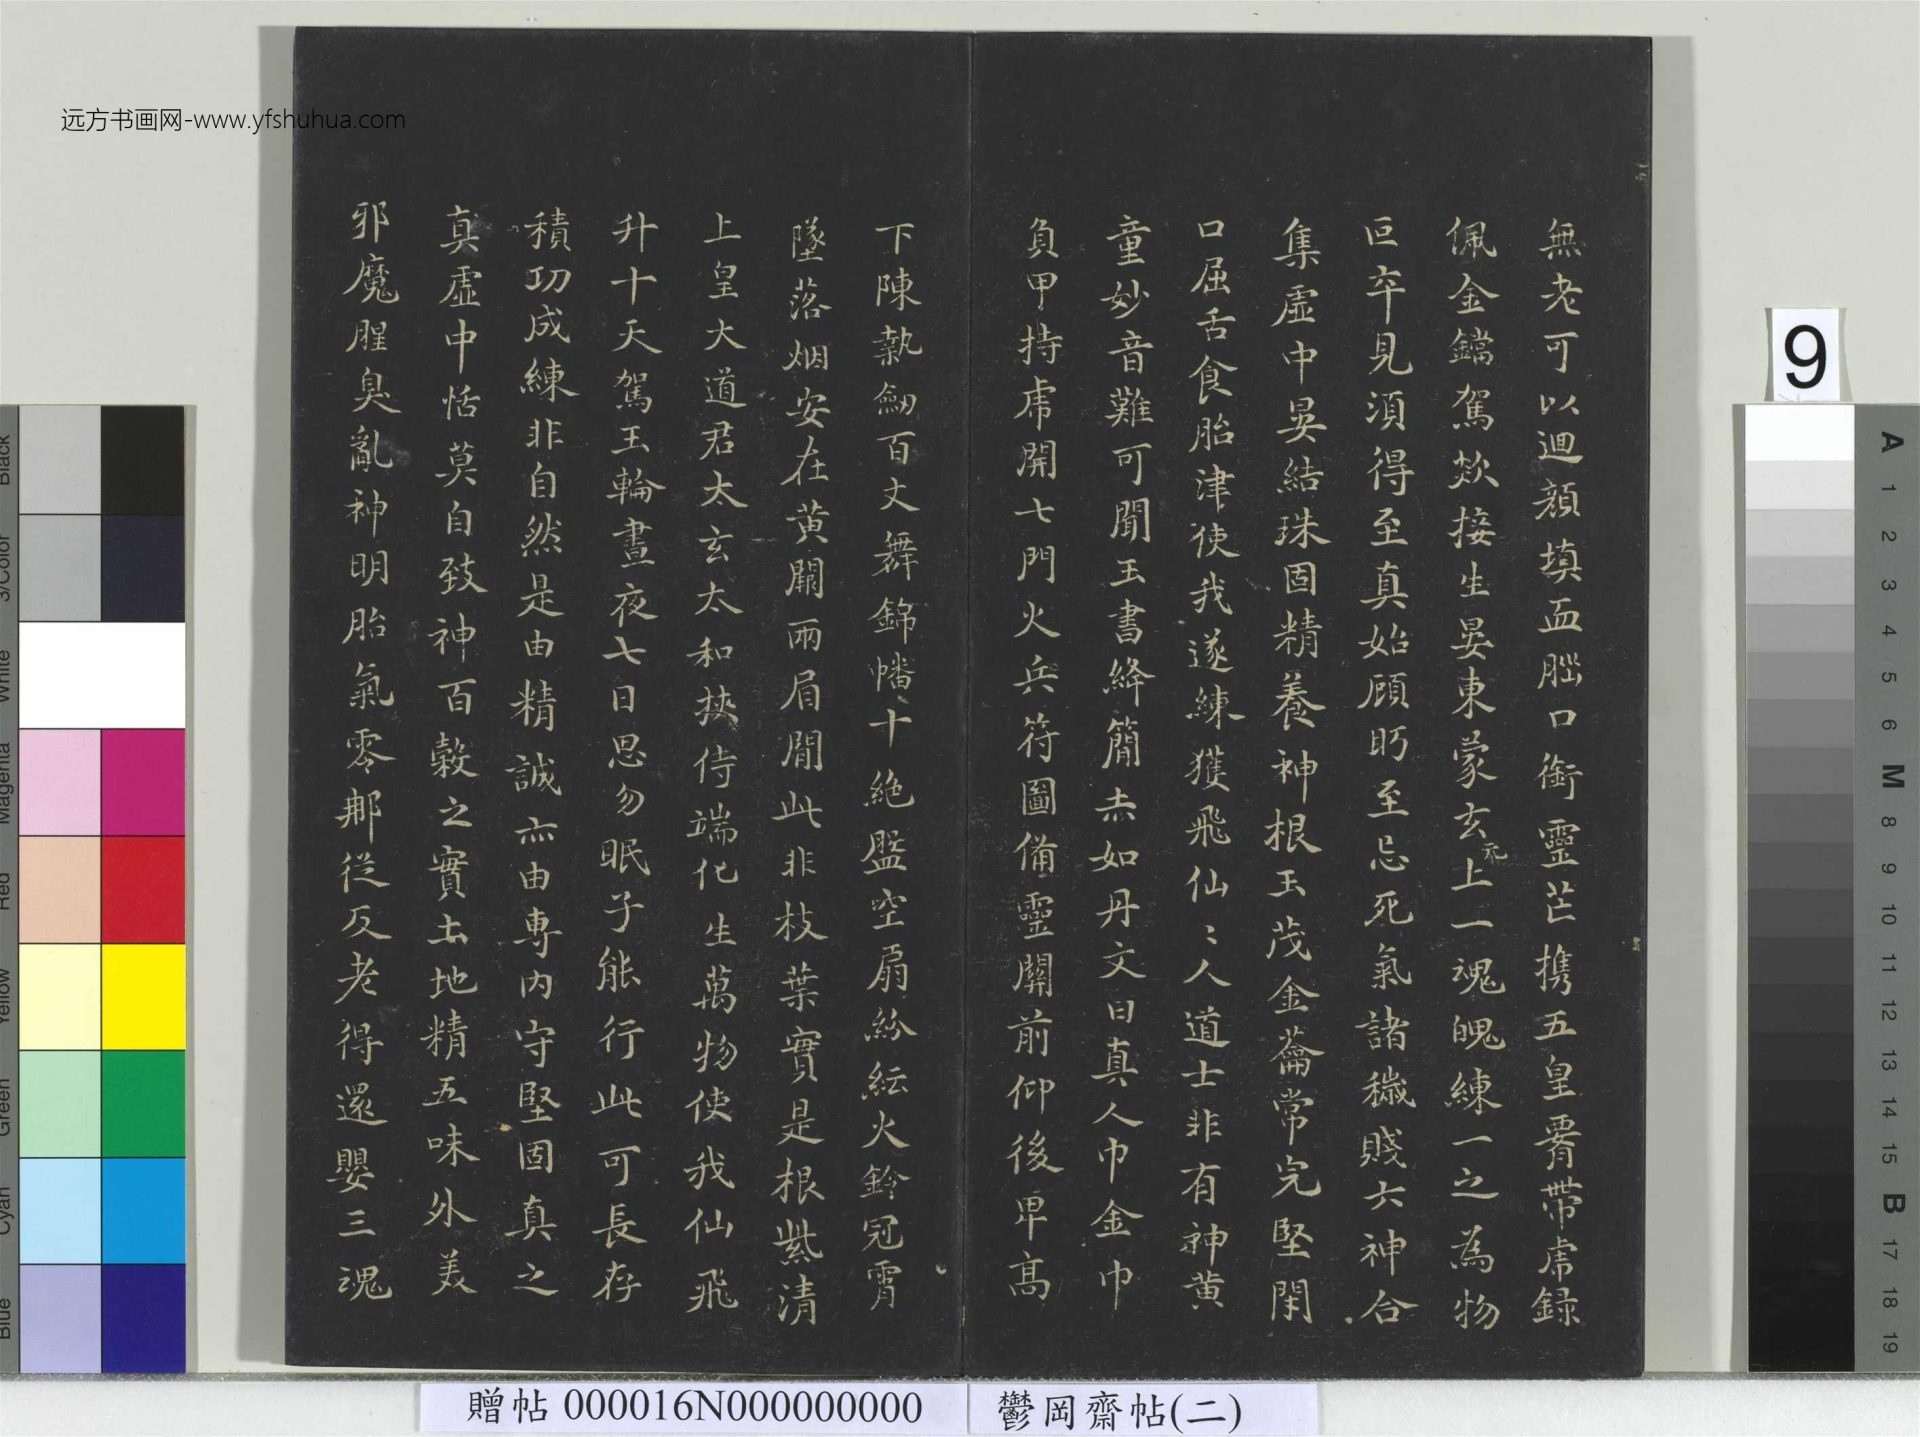 無老可以迴顏填血腦口銜靈芒携五皇腰帶虎錄
佩金鐺駕欻接生晏東蒙玄元上一魂魄練一之為物
叵卒見須得至真始顧眄至忌死氣諸穢賤六神合
集虛中晏結珠固精養神根玉茂金籥常完堅閇
口屈舌食胎津使我遂練獲飛仙〻人道士非有神黃
童妙音難可聞玉書絳簡赤如丹文曰真人巾金巾
負甲持虎開七門火兵符圖備靈關前仰後卑高
下陳執劒百丈舞錦幡十絕盤空扇紛紜火鈴冠霄
墜落烟安在黃闕兩眉間此非枝葉實是根紫清
上皇大道君太玄太和挾侍端化生萬物使我仙飛
升十天駕玉輪晝夜七日思勿眠子能行此可長存
積功成練非自然是由精誠亦由專內守堅固真之
真虛中恬莫自致神百穀之實土地精五味外美
邪魔腥臭亂神明胎氣零那從反老得還嬰三魂
远方书画网-www.yfshuhua.com
9
贈帖 000016N000000000
鬱岡齋帖(二)
Black
3/Color
White
Magenta
Red
Yellow
Green
Cyan
Blue
A
1
2
3
4
5
6
M
8
9
10
11
12
13
14
15
B
17
18
19